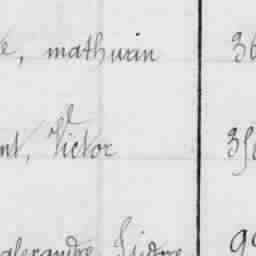 e, mathurin 36
nt, Victor 35
alexandre Isidore 99